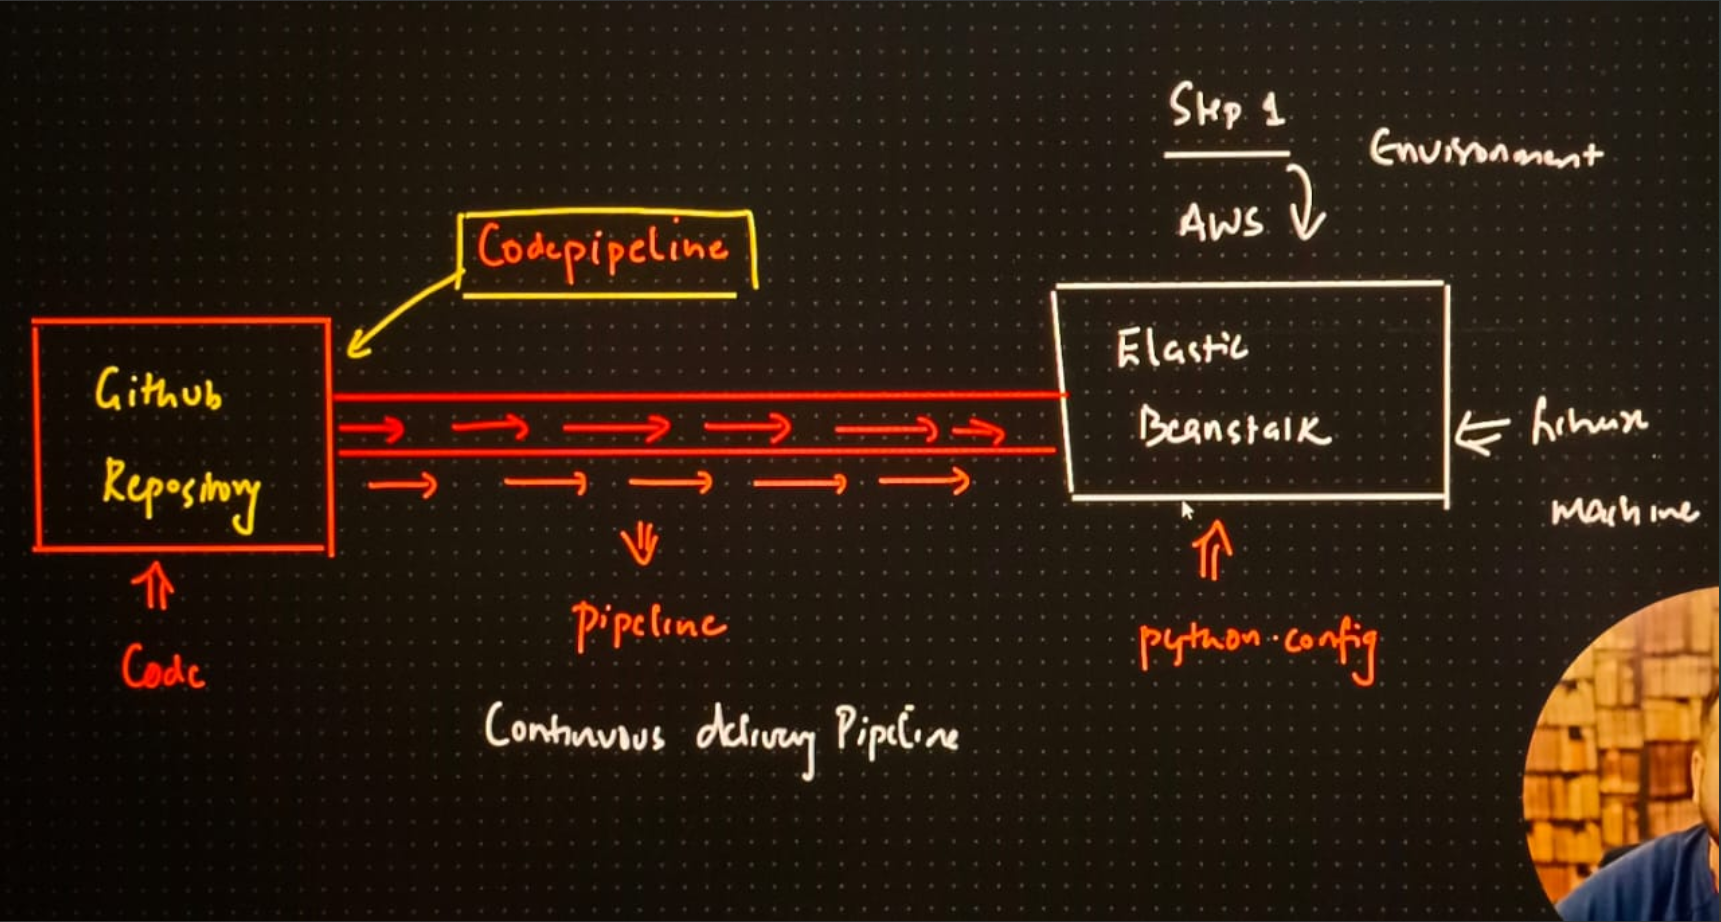 Step 1
Environment
AWS
Codepipeline
Github
Repository
Elastic
Beanstalk
machine
Code
Pipeline
python.config
Continuous delivery Pipeline